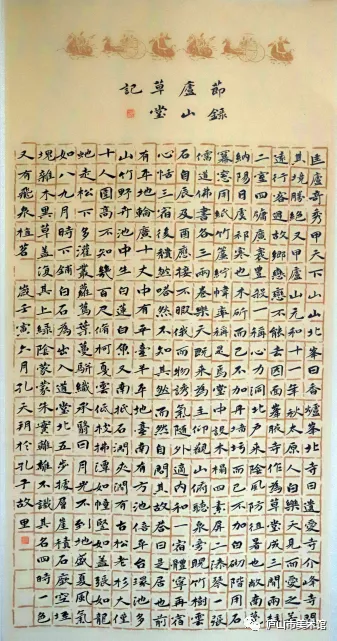 節錄
廬山
草堂
記
匡廬奇秀甲天下山山北峯曰香爐峯北寺曰遺愛寺介峰寺間
其境勝絕又甲廬山元和十一年秋太原人白樂天見而愛之若
遠行客過故鄉戀戀不能去因面峰腋寺作為草堂三間兩柱
二室四牖廣袤豐殺一稱心力洞北戶來陰風防徂暑也敞南甍
納陽日虞祁寒也木斲而已不加丹墻圬而已不加白砌階用石
冪窗用紙竹簾紵幃率稱是焉堂中設木榻四素屏二漆琴一張
儒道佛書各三兩卷樂天既來為主仰觀山俯聽泉旁睨竹樹雲
石自辰及酉應接不暇俄而物誘氣隨外適內和一宿體寧再宿
心恬三宿後頹然嗒然不知其然而然自問其故答曰是居也前
有平地輪廣十丈中有平臺半平地臺南有方池倍平臺環池多
山竹野卉池中生白蓮白魚又南抵石澗夾澗有古松老杉大僅
十人圍高不知幾百尺修柯戛雲低枝拂潭如幢豎如蓋張如龍
蛇走松下多灌叢蘿蔦葉蔓駢織承翳日月光不到地盛夏風氣
如八九月時下鋪白石為出入道堂北五步據層崖積石嵌空垤
堄雜木異草蓋覆其上綠陰蒙蒙朱實離離不識其名四時一色
又有飛泉植茗 歲壬寅六月孔天翔於孔子故里
庐山市美术馆